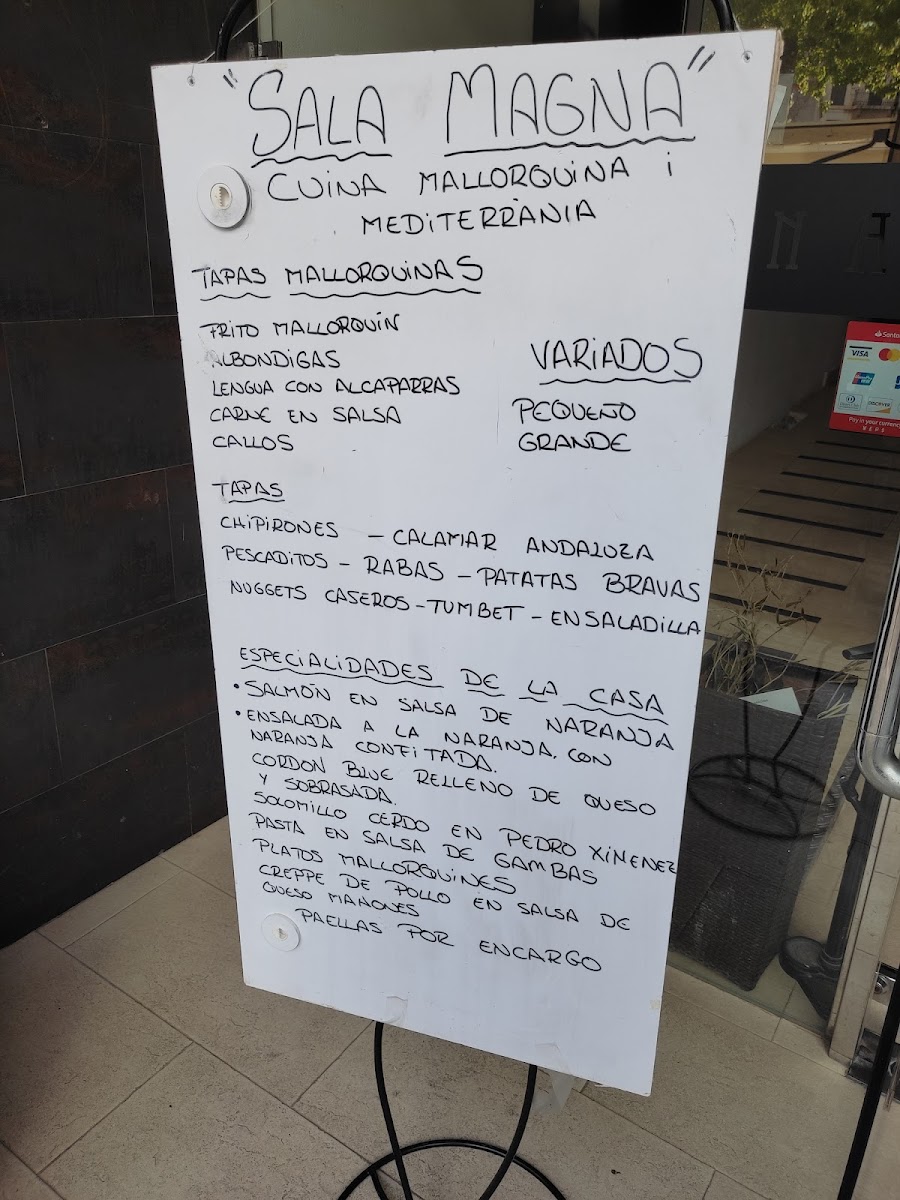 "SALA MAGNA"
CUINA MALLORQUINA i
MEDITERRÀNIA
TAPAS MALLORQUINAS
FRITO MALLORQUÍN
ALBONDIGAS
LENGUA CON ALCAPARRAS
CARNE EN SALSA
CALLOS
VARIADOS
PEQUEÑO
GRANDE
TAPAS
CHIPIRONES - CALAMAR ANDALUZA
PESCADITOS - RABAS - PATATAS BRAVAS
NUGGETS CASEROS - TUMBET - ENSALADILLA
ESPECIALIDADES DE LA CASA
• SALMÓN EN SALSA DE NARANJA
• ENSALADA A LA NARANJA, CON
NARANJA CONFITADA.
CORDON BLUE RELLENO DE QUESO
Y SOBRASADA.
SOLOMILLO CERDO EN PEDRO XIMENEZ
PASTA EN SALSA DE GAMBAS
PLATOS MALLORQUINES
CREPPE DE POLLO EN SALSA DE
QUESO MAHONES
PAELLAS POR ENCARGO
VISA
DISCOVER
Pay in your currency